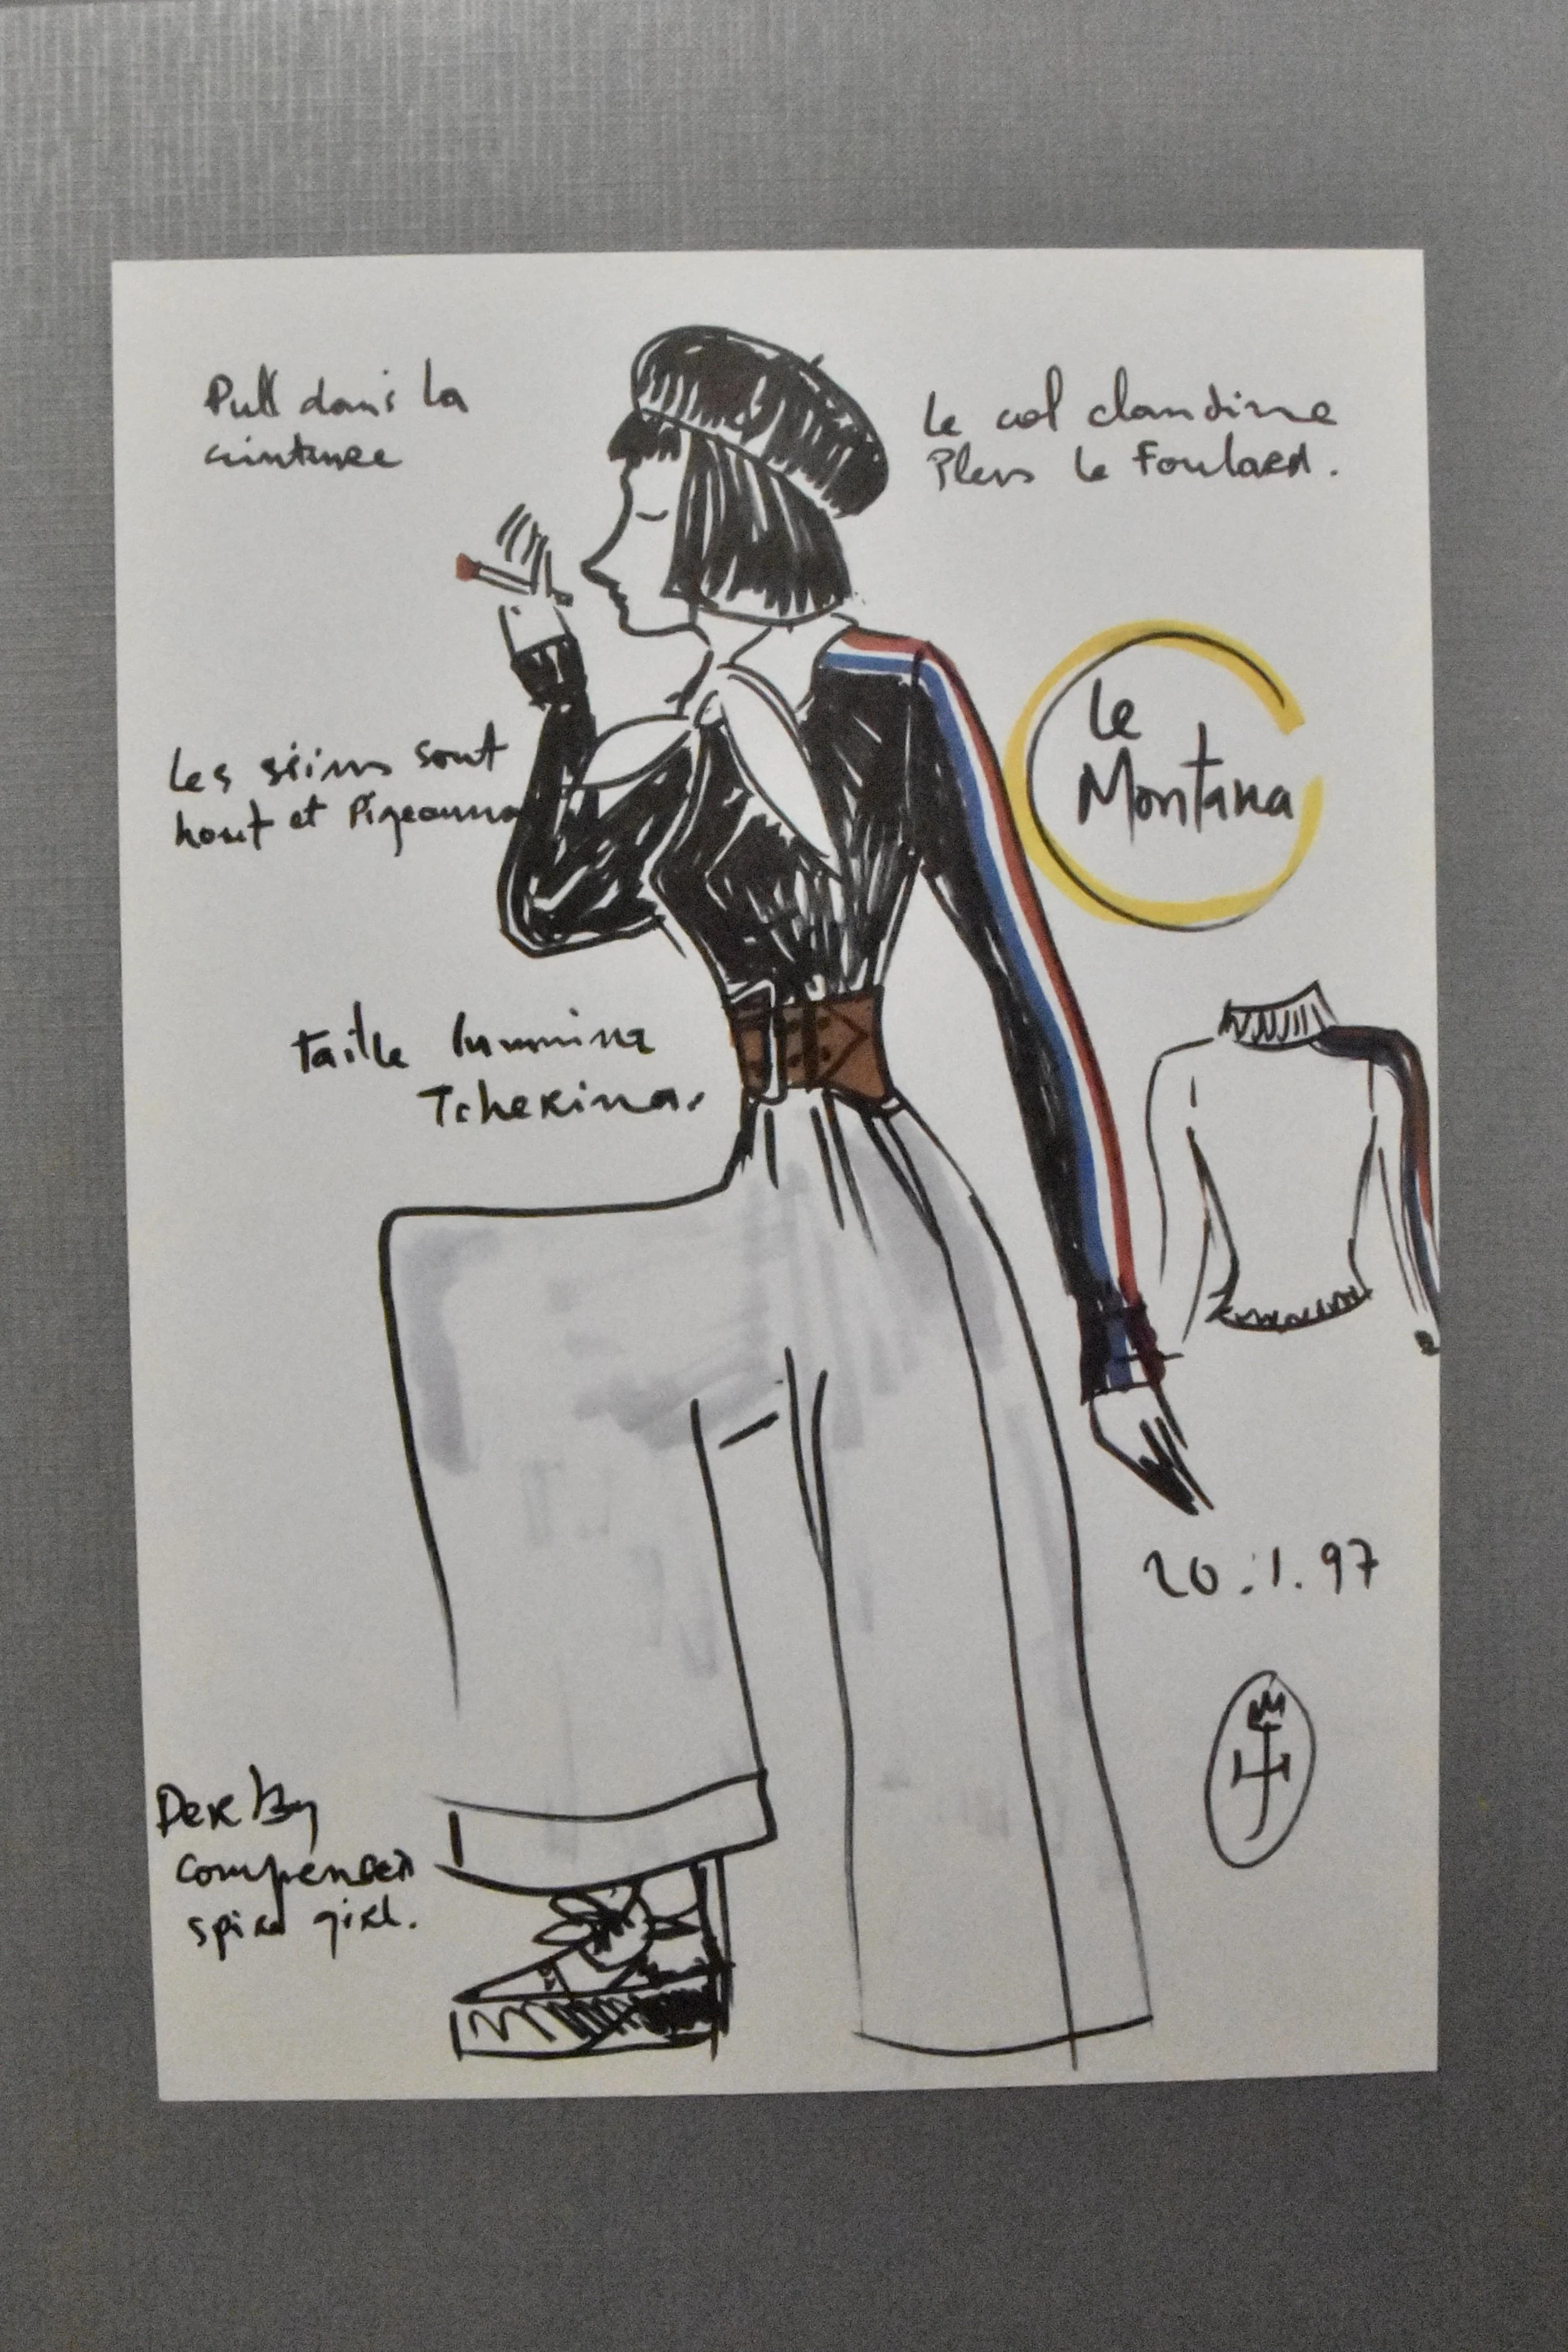 Pull dans la
ceinture
Le col claudine
Plus le Foulard.
Le
Montana
Les seins sont
haut et Pigeonna
taille
Tcherina.
20.1.97
Derby
compensed
girl.